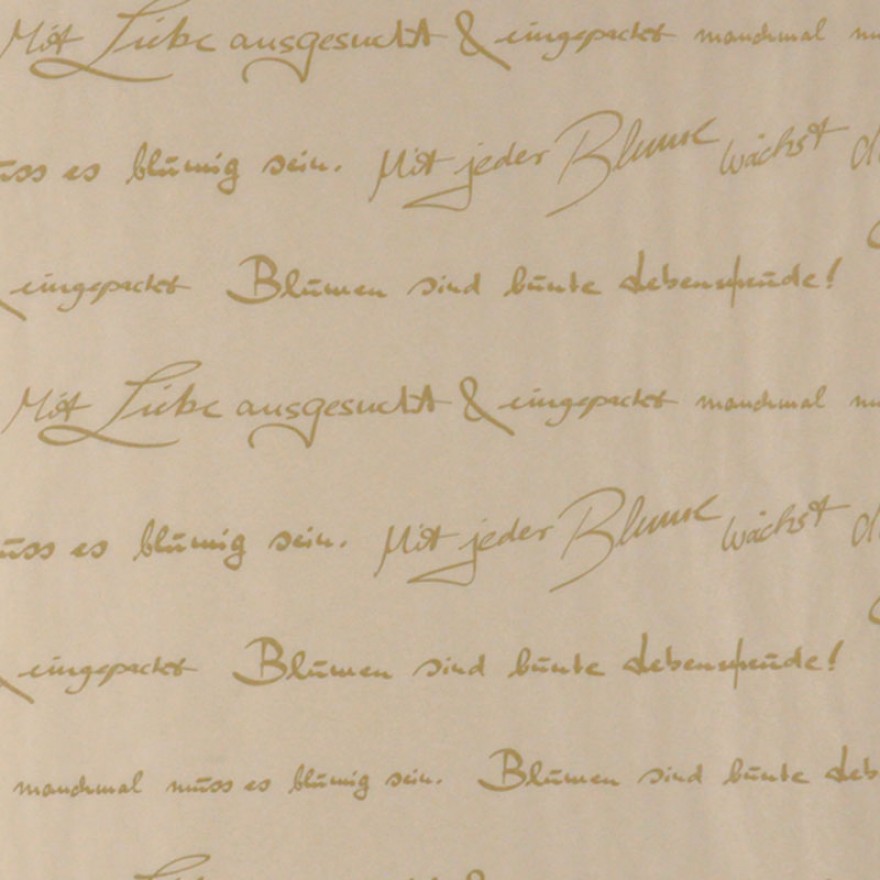 Mit Liebe ausgesucht & eingepackt manchmal
muss es blumig sein. Mit jeder Blume wächst
eingepackt Blumen sind bunte Lebensfreude!
Mit Liebe ausgesucht & eingepackt manchmal
muss es blumig sein. Mit jeder Blume wächst
eingepackt Blumen sind bunte Lebensfreude!
manchmal muss es blumig sein. Blumen sind bunte Leb